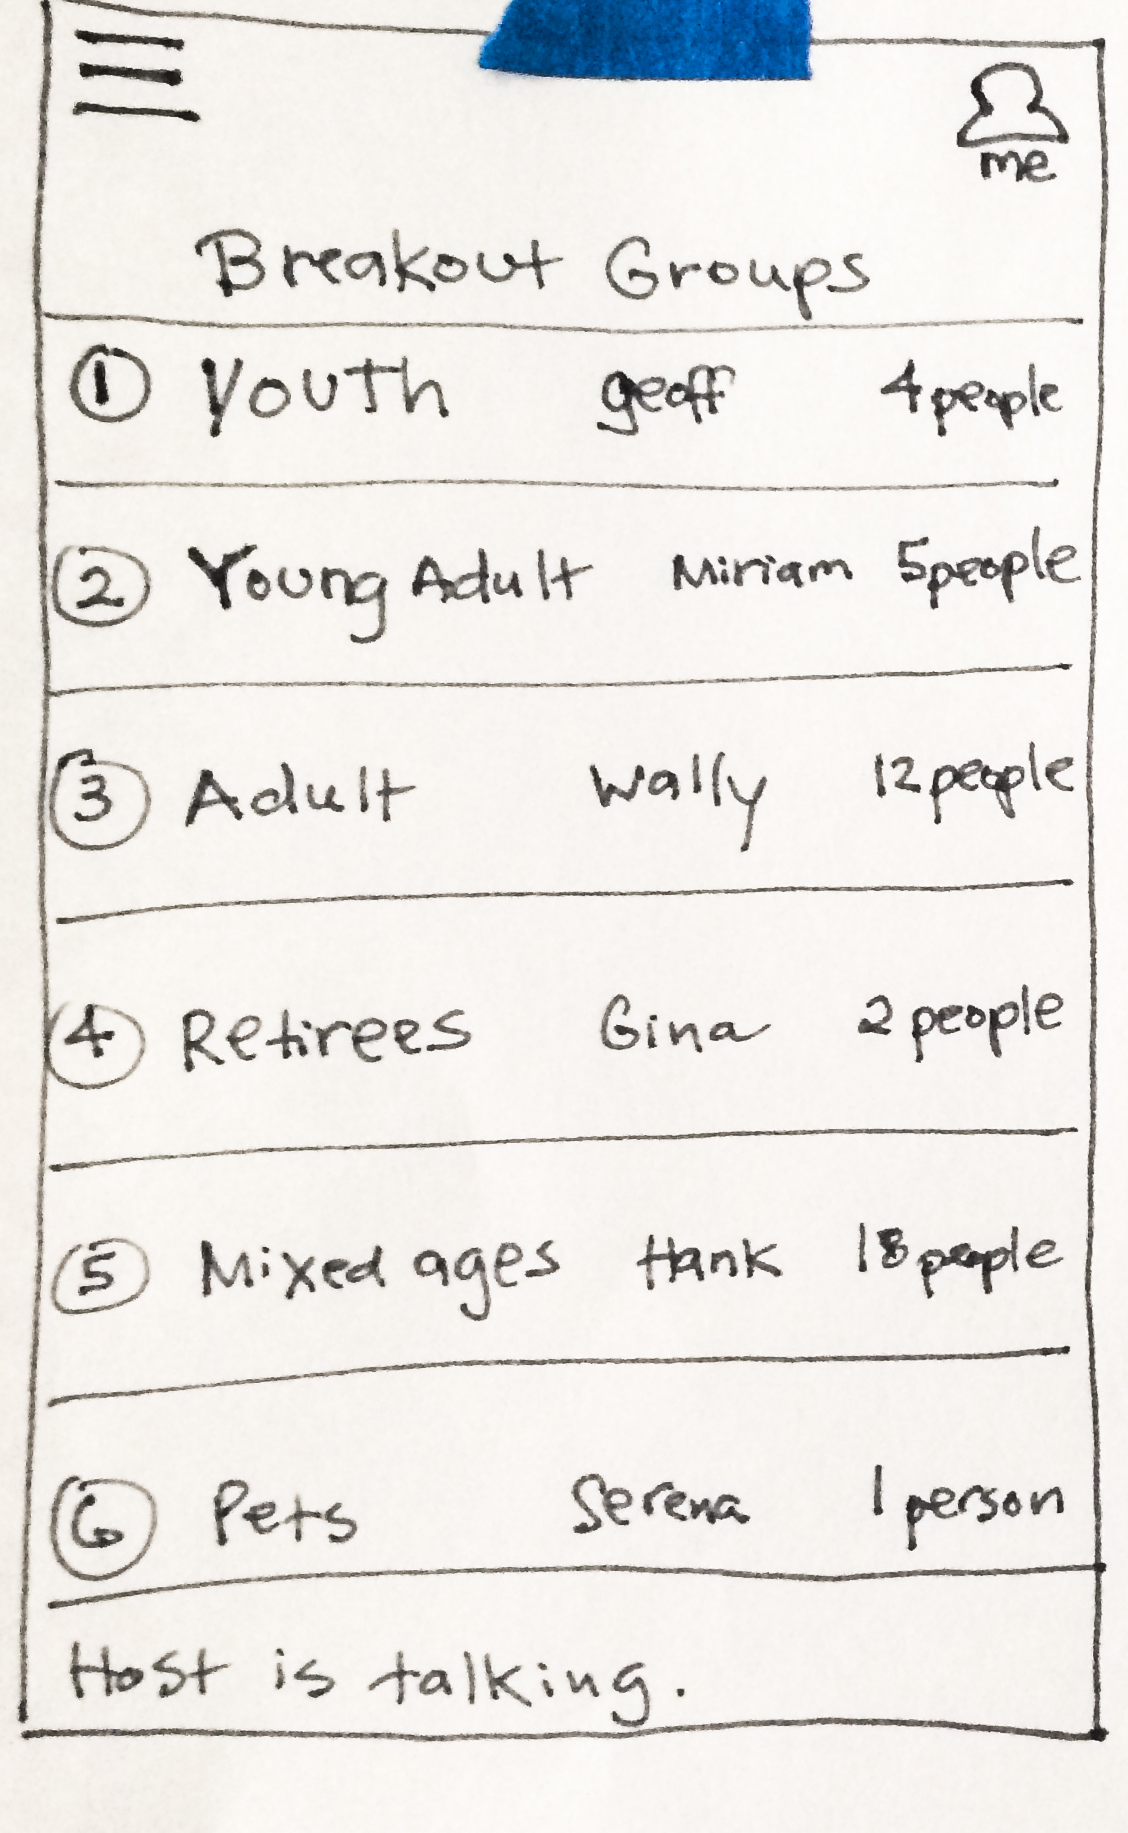 me
Breakout Groups
1 Youth geoff 4 people
2 Young Adult Miriam 5 people
3 Adult Wally 12 people
4 Retirees Gina 2 people
5 Mixed ages Hank 18 people
6 Pets Serena 1 person
Host is talking.